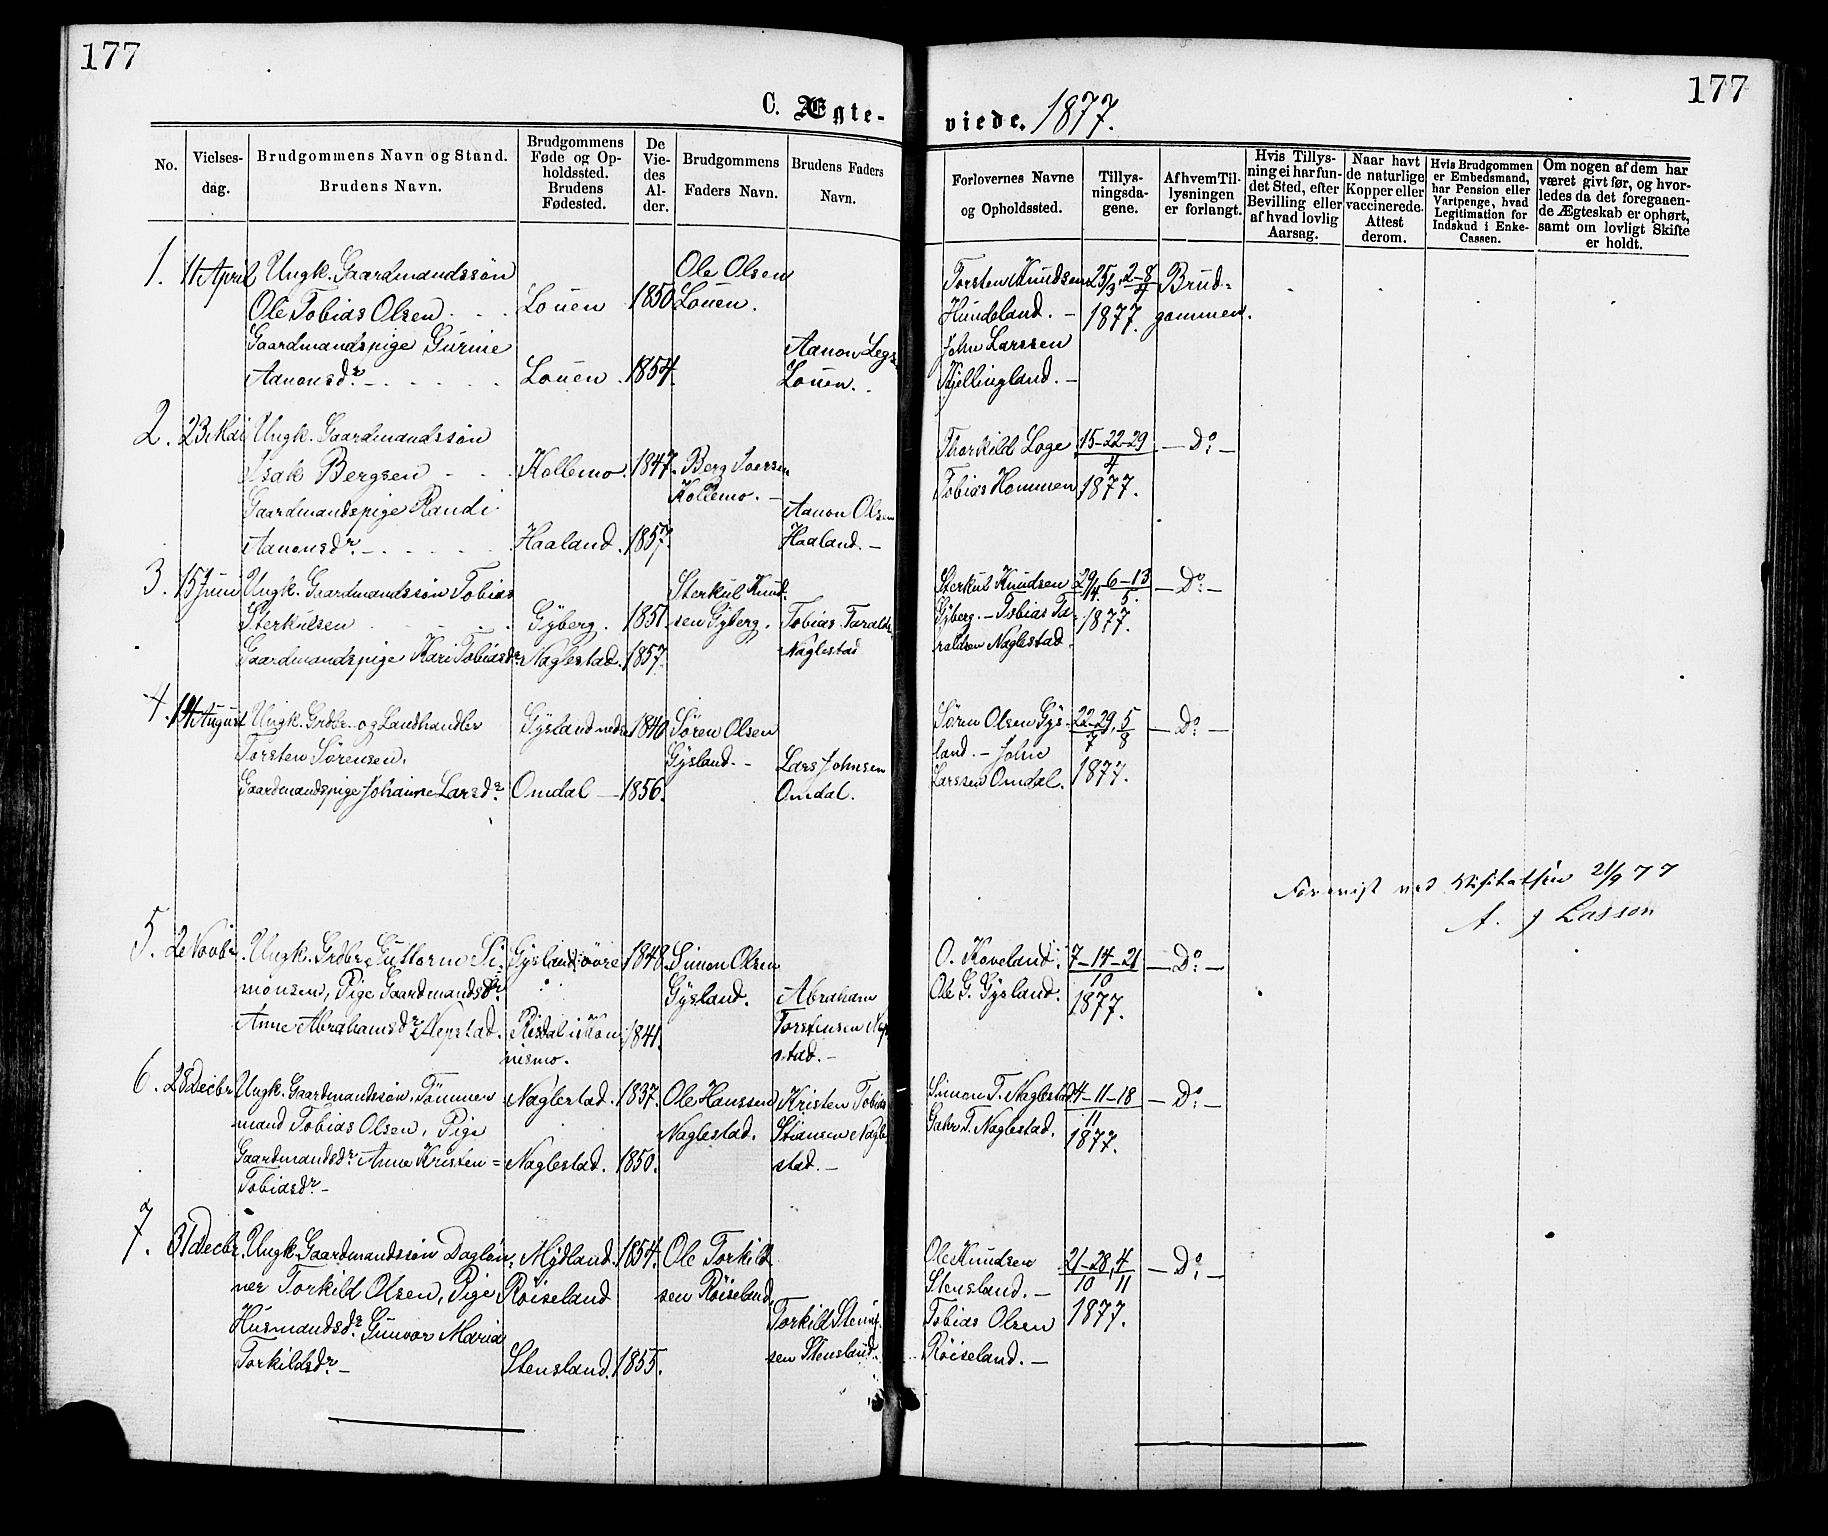 177
177
C. Ægte-
viede. 1877.
No.
Vielses-
dag.
Brudgommens Navn og Stand.
Brudens Navn.
Brudgommens
Føde og Op-
holdssted.
Brudens
Fødested.
De
Vie-
des
Al-
der.
Brudgommens
Faders Navn.
Brudens Faders
Navn.
Forlovernes Navne
og Opholdssted.
Tillys-
ningsda-
gene.
Af hvem Til-
lysningen
er forlangt.
Hvis Tillys-
ning ei har fun-
det Sted, efter
Bevilling eller
af hvad lovlig
Aarsag.
Naar havt
de naturlige
Kopper eller
vaccinerede.
Attest
derom.
Hvis Brudgommen
er Embedsmand,
har Pension eller
Vartpenge, hvad
Legitimation for
Indskud i Enke-
Cassen.
Om nogen af dem har
været givt før, og hvor-
ledes da det foregaaen-
de Ægteskab er ophørt,
samt om lovligt Skifte
er holdt.
1. 11 April Ungk. Gaardmandssøn
Ole Tobias Olsen. Louen 1850
Ole Olsen
Louen.
Gaardmandspige Gurine
Aanonsdr. Louen. 1854.
Aanon
Louen.
Torsten Knudsen
Hundeland. –
John Larssen
Kjellingland. –
25/3, 2–8/4
1877.
Brud-
gommen.
2. 23 Mai Ungk. Gaardmandssøn
Isak Bergsen Kollemo. 1847.
Berg
Kollemo. –
Gaardmandspige Randi
Aanonsdr. – Haaland. 1857.
Aanon Olsen
Haaland. –
Thorkild Loge
Tobias Hommen
15–22–29/4
1877.
– Do. –
3. 15 Juni Ungk. Gaardmandssøn Tobias
Sterkulsen Gyberg. 1851.
Sterkul Knud-
sen Gyberg.
Gaardmandspige Kari Tobiasdr. Naglestad. 1857.
Tobias Taralds
Naglestad
Sterkul Knudsen
Gyberg. – Tobias Ta-
raldsen Naglestad.
29/4–6–13/5.
1877.
– Do. –
4. 14 August Ungk. Grdbr. og Landhandler
Torsten Sørensen.
Gysland nedre 1840
Søren Olsen
Gysland. –
Gaardmandspige Johanne Larsdr. Omdal – 1856.
Lars Johnsen
Omdal.
Søren Olsen Gys-
land. – John
Larssen Omdal.
22–29/7, 5/8
1877.
– Do. –
Forevist ved Visitatsen 21/9 77
J Lasson
5. 2 Novbr. Ungk. Grdbr. Guttorm Si-
monsen, Pige Gaardmandsdr.
Anne Abrahamsdr. Nepstad.
Gysland øvre 1848.
Risdal i
nesmo. 1841.
Simon Olsen
Gysland.
Abraham
Torstensen Nep
stad. –
O. Koveland.
Ole G. Gysland.
7–14–21/10
1877.
– Do. –
6. 28 Decbr. Ungk. Gaardmandssøn, Tømmer
mand Tobias Olsen, Pige
Gaardmandsdr. Anne Kristen-
Tobiasdr. –
Naglestad. 1837.
Naglestad. 1850.
Ole Hanssen
Naglestad.
Kristen Tobias
Stiansen Nagle
stad. –
Simon T. Naglestad
T. Naglestad.
4–11–18/11
1877.
– Do. –
7. 31 Decbr. Ungk. Gaardmandssøn Dagløn-
ner Torkild Olsen, Pige
Husmandsdr. Gunvor Maria
Torkildsdr. –
Mydland. 1854.
Røiseland
Stensland. 1855.
Ole Torkild
sen Røiseland.
Torkild
sen Stensland.
Ole Knudsen
Stensland. –
Tobias Olsen
Røiseland. –
21–28/10, 4/11
1877.
– Do. –